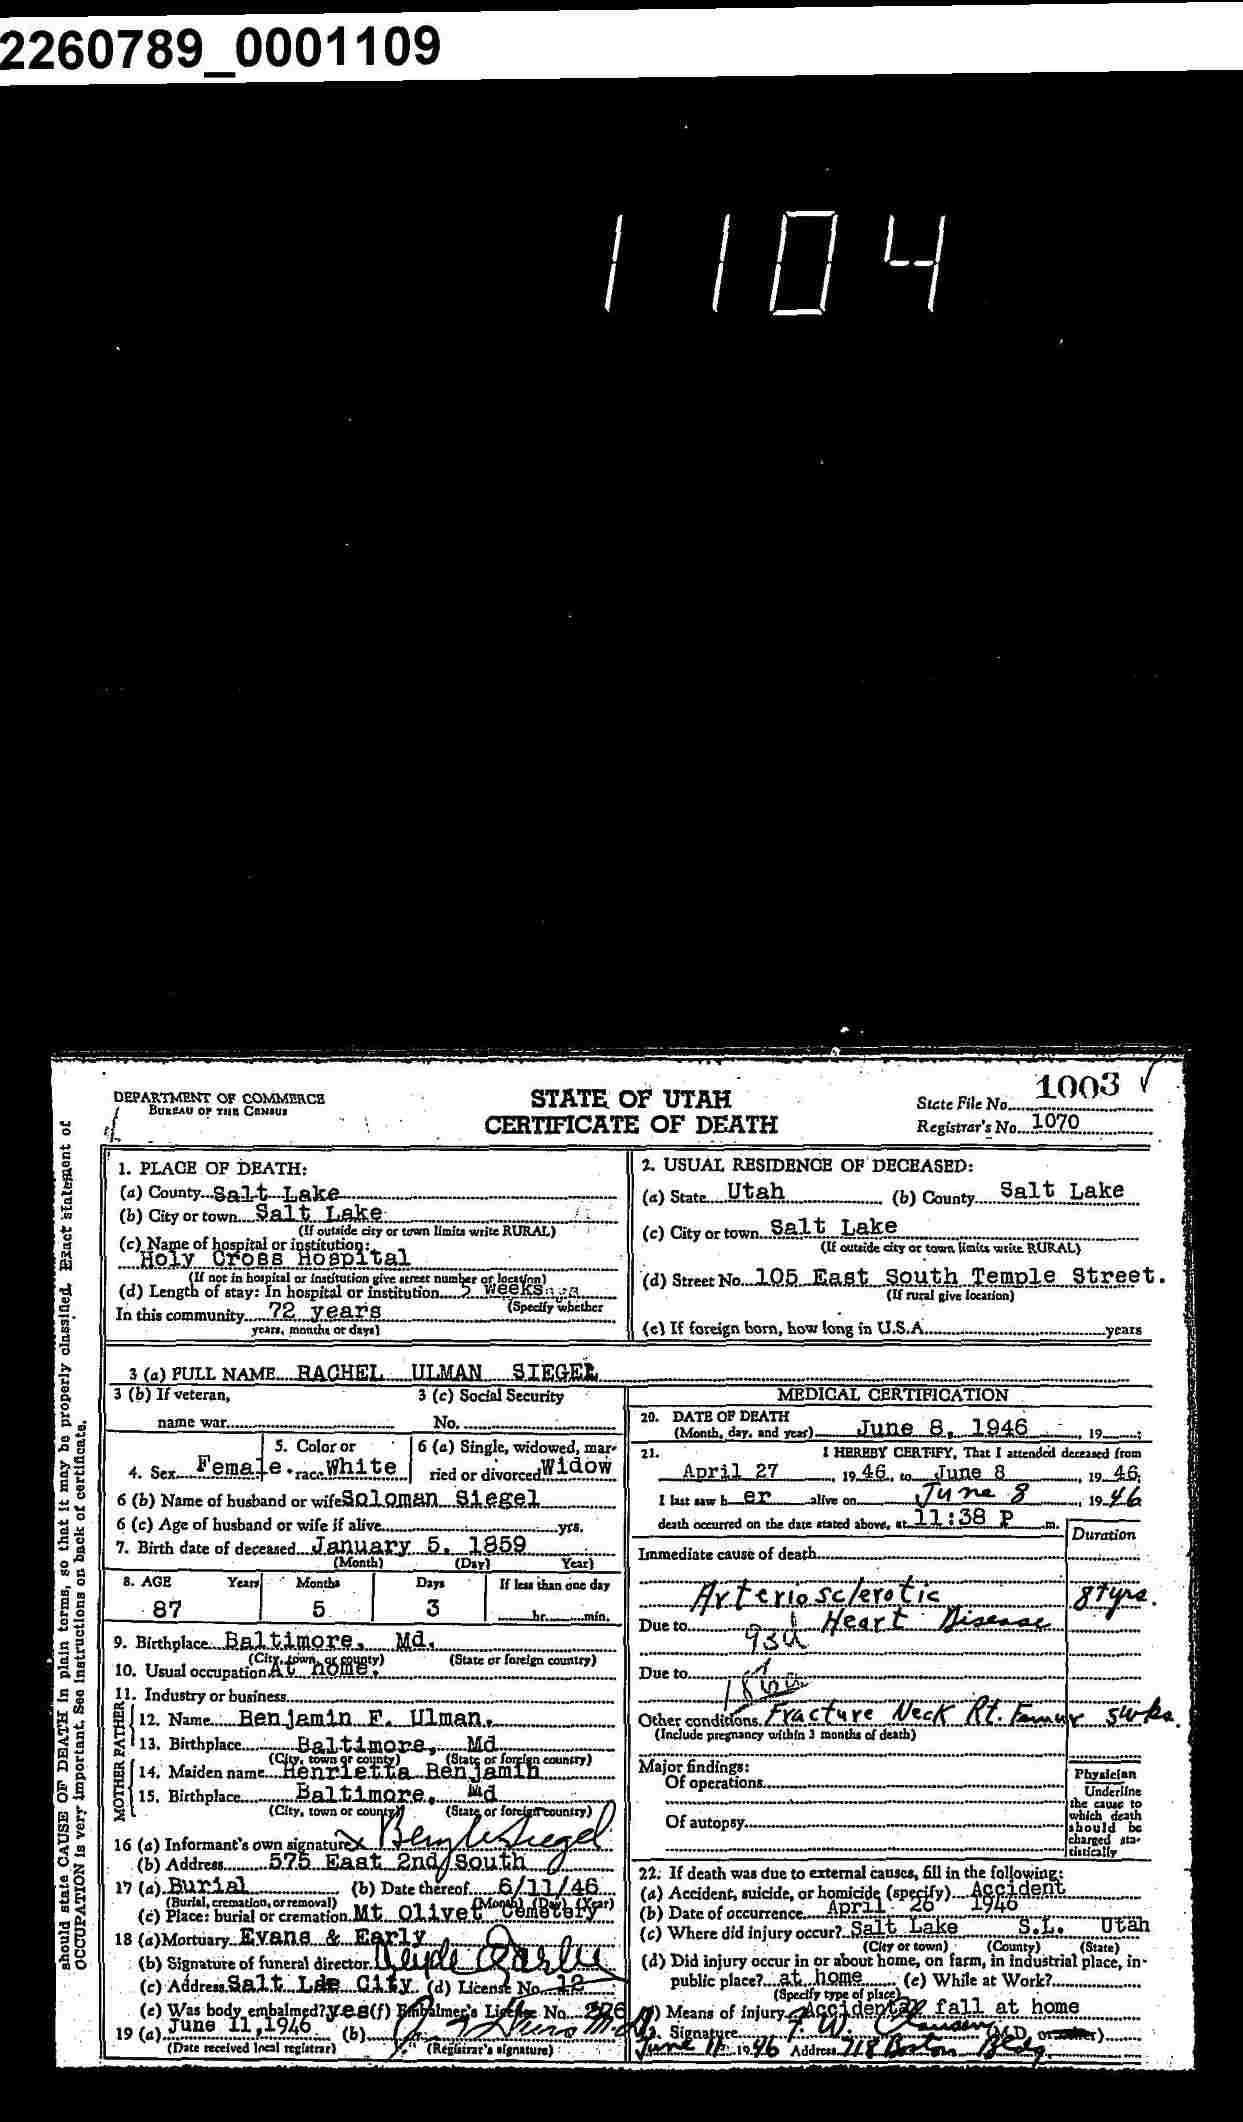 2260789_0001109
1104
DEPARTMENT OF COMMERCE
BUREAU OF THE CENSUS
STATE OF UTAH
CERTIFICATE OF DEATH
State File No. 1003
Registrar's No. 1070
should state CAUSE OF DEATH in plain terms, so that it may be properly classified. Exact statement of
OCCUPATION is very important. See instructions on back of certificate.
1. PLACE OF DEATH:
(a) County Salt Lake
(b) City or town Salt Lake
(If outside city or town limits write RURAL)
(c) Name of hospital or institution:
Holy Cross Hospital
(If not in hospital or institution give street number or location)
(d) Length of stay: In hospital or institution 5 weeks
(Specify whether
In this community 72 years
years, months or days)
2. USUAL RESIDENCE OF DECEASED:
(a) State Utah (b) County Salt Lake
(c) City or town Salt Lake
(If outside city or town limits write RURAL)
(d) Street No. 105 East South Temple Street.
(If rural give location)
(e) If foreign born, how long in U.S.A. years
3 (a) FULL NAME RACHEL ULMAN SIEGEL
3 (b) If veteran, 3 (c) Social Security
name war No.
4. Sex Female. 5. Color or race White 6 (a) Single, widowed, married or divorced Widow
6 (b) Name of husband or wife Soloman Siegel
6 (c) Age of husband or wife if alive yrs.
7. Birth date of deceased January 5, 1859
(Month) (Day) Year)
8. AGE Years Months Days If less than one day
87 5 3 hr. min.
9. Birthplace Baltimore, Md.
(City, town, or county) (State or foreign country)
10. Usual occupation At home.
11. Industry or business
FATHER
12. Name Benjamin F. Ulman.
13. Birthplace Baltimore, Md
(City, town or county) (State or foreign country)
MOTHER
14. Maiden name Henrietta Benjamin
15. Birthplace Baltimore, Md
(City, town or county) (State or foreign country)
16 (a) Informant's own signature X Siegel
(b) Address 575 East 2nd South
17 (a) Burial (b) Date thereof 6/11/46
(Burial, cremation, or removal) (Month) (Day) (Year)
(c) Place: burial or cremation Mt Olivet Cemetery
18 (a) Mortuary Evans & Early
(b) Signature of funeral director Clyde Early
(c) Address Salt Lae City (d) License No. 12
(e) Was body embalmed? yes (f) Embalmer's License No.
19 (a) June 11, 1946 (b) M.D.
(Date received local registrar) (Registrar's signature)
MEDICAL CERTIFICATION
20. DATE OF DEATH
(Month, day, and year) June 8, 1946 19
21. I HEREBY CERTIFY, That I attended deceased from
April 27, 1946, to June 8, 1946,
I last saw h er alive on June 8 1946
death occurred on the date stated above, at 11:38 P m.
Duration
Immediate cause of death
Arteriosclerotic 8+yrs.
Due to Heart Disease
93d
Due to
Other conditions Fracture Neck Rt. Femur 5wks.
(Include pregnancy within 3 months of death)
Major findings:
Of operations
Of autopsy
Physician
Underline
the cause to
which death
should be
charged sta-
tistically
22. If death was due to external causes, fill in the following:
(a) Accident, suicide, or homicide (specify) Accident
(b) Date of occurrence April 26 1946
(c) Where did injury occur? Salt Lake S.L. Utah
(City or town) (County) (State)
(d) Did injury occur in or about home, on farm, in industrial place, in-
public place? at home (e) While at Work?
(Specify type of place)
(f) Means of injury Accidental fall at home
23. Signature (M.D. or other)
June 11 1946 Address 718 Boston Bldg.